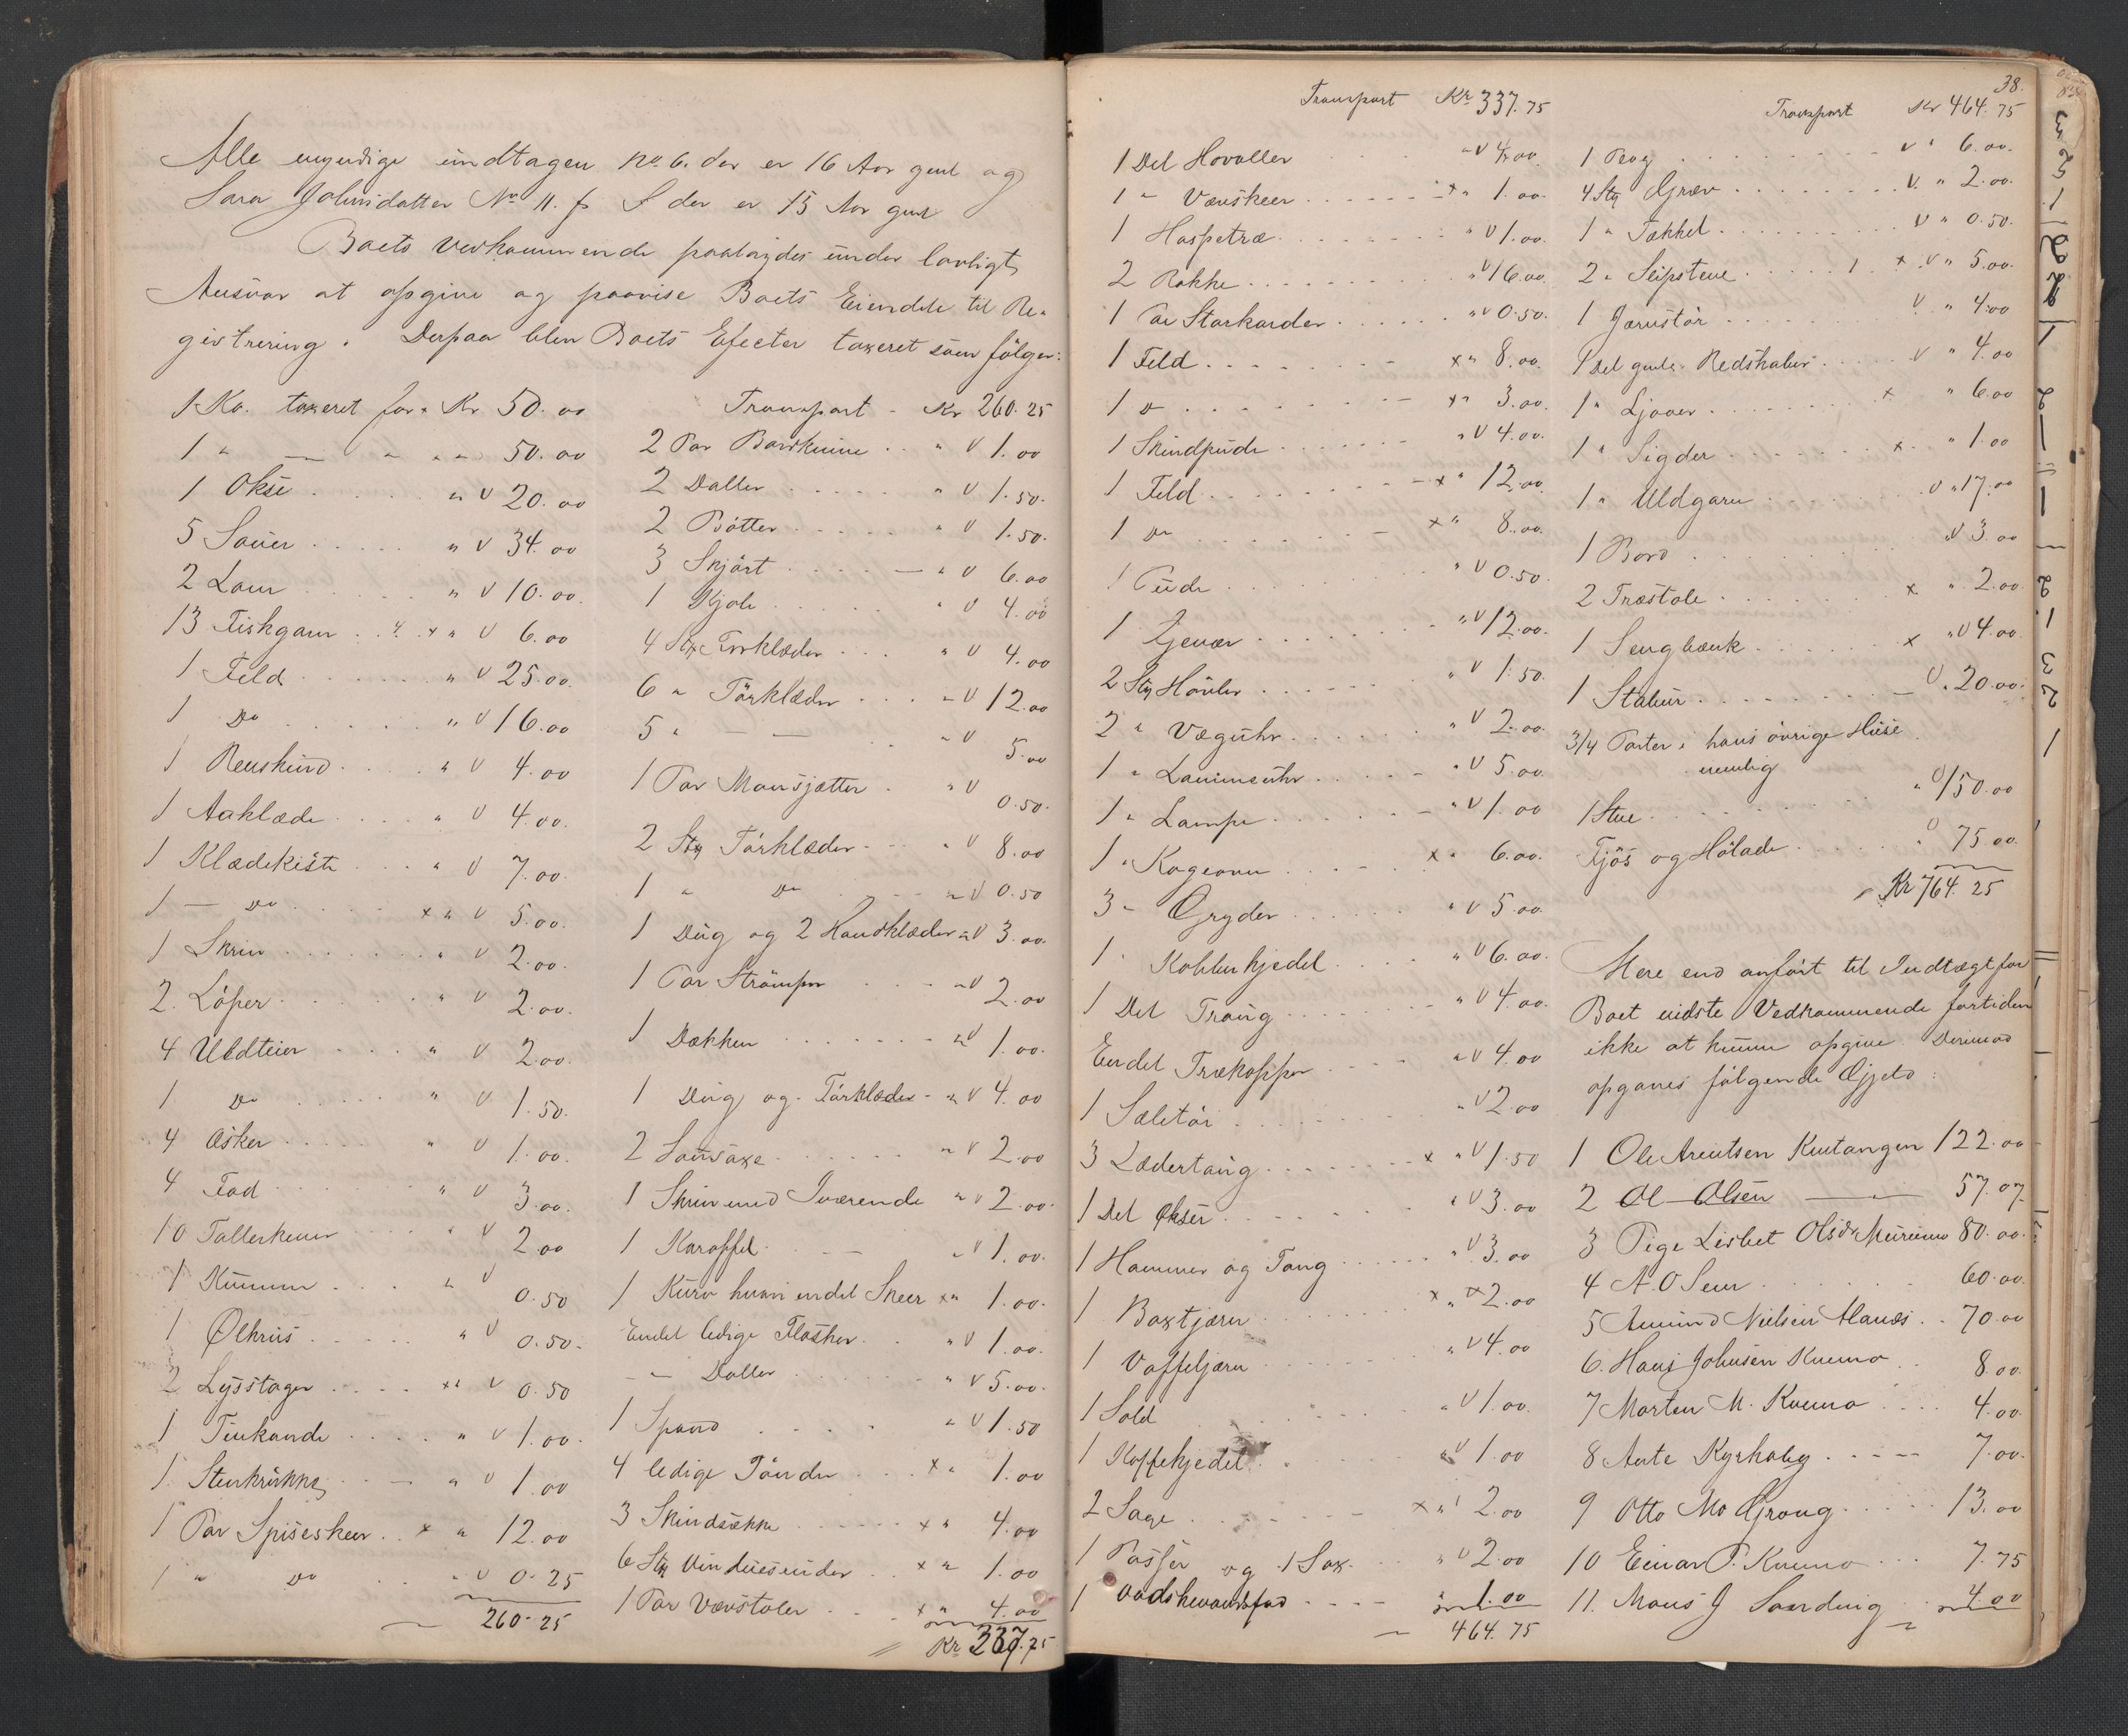 Alle umyndige undtagen No 6. der er 16 Aar gml og
Sara Johnsdatter No 11. f. S der er 15 Aar gml
Boets Vedkommende paalagdes under lovligt
Ansvar at opgive og paavise Boets Eiendele til Re-
gistrering. Derpaa blev Boets Efecter taxeret som fölger:
1 Ko. taxeret for. Kr 50.00
1 " — " " " 50.00
1 Okse . . . " V 20.00
5 Sauer . . . " V 34.00
2 Lam . . . " V 10.00
13 Fiskgarn . . x " V 6.00
1 Feld . . . " V 25.00
1 Do . . . " V 16.00
1 Renskind . . . " V 4.00
1 Aaklæde . . . " V 4.00
1 Klædekiste . . . " V 7.00
1 — Do . . . x " V 5.00
1 Skrin . . . " V 2.00
2 Löper . . . " V 2.00
4 Uldteier . . . " V 2.00
1 Do . . . " V 1.50
4 Æsker . . . " V 1.00
4 Fad . . . " V 3.00
10 Tallerkener . . . " V 2.00
1 Kumme . . . " V 0.50
1 Ølkrus . . . " V 0.50
2 Lysstager . . . x " V 0.50
1 Tinkande . . . " V 1.00
1 Stenkrukke . . . " V 1.00
1 Par Spiseskeer . . x " 12.00
1 " Do . . . " V 0.25
260.25
Transport - Kr 260.25
2 Par . . " V 1.00
2 Daller . . . " V 1.50
2 Bötter . . . " V 1.50
3 Skjört . . . " V 6.00
1 Kjole . . . " V 4.00
4 Stk Forklæder . . . " V 4.00
6 " Törklæder . . . " V 12.00
5 " — — . . " V 5.00
1 Par Mansjetter . " V 0.50
2 Stk Törklæder . . " V 8.00
1 " Do . . . " V 0.50
1 Dug og 2 Handklæder " V 3.00
1 Par Strömper . . . " V 2.00
1 Dækken . . . " V 1.00
1 Dug og Törklæder - " V 4.00
2 Sausaxe . . . " V 2.00
1 Skrin med Iværende " V 2.00
1 Karaffel . — " V 1.00
1 Kurv hvori endel Skeer x " 1.00
Endel ledige Flasker . . " V 1.00
— " — Daller . . . " V 5.00
1 Spand . . . " V 1.50
4 ledige Tönder . . . x " 1.00
3 Skindsække . . . x " 4.00
6 Stk . . x " 1.00
1 Par Vævstoler . . x " 4.00
Kr 337.75
Transport Kr 337.75
1 Del Hovoller . . . " V 4.00
1 " Vævskeer . . . x " 1.00
1 Haspetræ . . . " V 1.00
2 Rokke . . . " V 16.00
1 Par Starkarder . . . " V 0.50
1 Feld . . . x " 8.00
1 D . . . x " 3.00
1 Skindpude . . . " V 4.00
1 Feld . . . x " 12.00
1 Do . . . x " 8.00
1 Pude . . . " V 0.50
1 Gjevær . . . " V 12.00
2 Stk Hövler . . . " V 1.50
2 " Væguhr . . . " V 2.00
1 " Lommeuhr . . . " V 5.00
1 " Lampe . . . " V 1.00
1 " Kogeovn . . . x " 6.00
3 " Gryder . . . " V 5.00
1 " Kobberkjedel . . . " V 6.00
1 Del Traug . . . " V 4.00
Endel Trækopper . . . " V 4.00
1 Sæletöi . . . " V 2.00
3 Lædertaug . . . x " V 1.50
1 Del Økser . . . " V 3.00
1 Hammer og Tang . . . " V 3.00
1 Baxtjærn . . . x " 2.00
1 Vaffeljærn . . . " V 4.00
1 Sold . . . " V 1.00
1 Kaffekjedel . . . " V 1.00
2 Sage . . . x " 2.00
1 Passer og 1 Sax . . " V 2.00
1 Vadskevandsfad . . . " 1.00
464.75
38.
Transport Kr 464.75
1 . . . V " 6.00
4 Stk Græv . . . V " 2.00
1 " Takkel . . . V " 0.50
2 " Slipstene . . . x V " 5.00
1 Jærnstör . . . V " 4.00
1 Del gamle Redskaber . . V " 4.00
1 " Ljaaer . . . x " 6.00
1 " Sigder . . . x " 1.00
1 " Uldgarn . . . V " 17.00
1 Bord . . . " V 3.00
2 Træstole . . . x " 2.00
1 Sengbænk . . . x " V 4.00
1 Stabur . . . V " 20.00
3/4 Parter i hans övrige Huse
nemlig
1 Stue . . . " V 150.00
Fjös og Hölade . . . " V 75.00
Kr 764.25
Mere end anfört til Indtægt for
Boet vidste Vedkommende fortiden
ikke at kunne opgive. Derimod
opgaves fölgende Gjæld:
1 Ole Arentsen Kutangen 122.00
2 Ol Olsen — " — 57.07
3 Pige Lisbet Olsdr Murumo 80.00
4 A. O. Sem . . . 60.00
5 Amund Nielsen Alanæs . . 70.00
6. Hans Johnsen Kvemo . . 8.00
7 Morten M. Kvemo . . . 4.00
8 Ante Kyrkoby . . . 7.00
9 Otto Mo Grong . . . 13.00
10 Einar P. Kvemo . . . 7.75
11. Mons J Sanding . . . 4.00